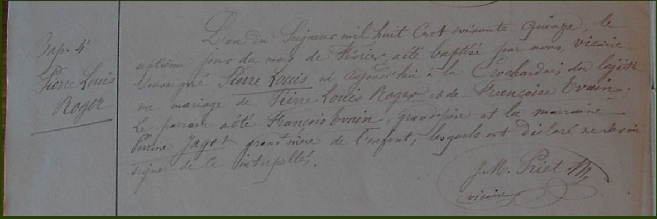 Bap. 4e
Pierre Louis
Roger
L'an du Seigneur mil huit cent soixante quinze, le
septième jour du mois de Février, a été baptisé par nous vicaire
soussigné Pierre Louis né aujourd'hui à la Crochardais du légiti-
me mariage de Pierre Louis Roger et de Françoise Evain.
Le parrain a été François Evain, grand père et la marraine
Perrine Jagot grand'mère de l'enfant, lesquels ont déclaré ne savoir
signer de ce interpellés.
J. M. Priet
vicaire